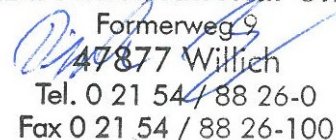 Formerweg 9
47877 Willich
Tel. 0 21 54 / 88 26-0
Fax 0 21 54 / 88 26-100